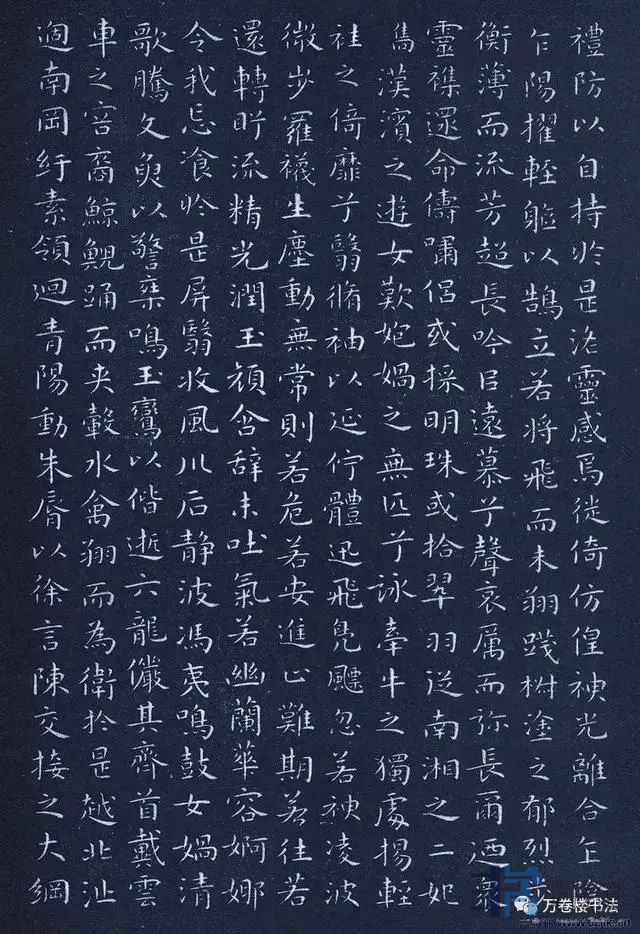 禮防以自持於是洛靈感焉徙倚仿偟神光離合乍陰
乍陽擢輕軀以鵠立若將飛而未翔踐椒塗之郁烈步
衡薄而流芳超長吟以遠慕兮聲哀厲而弥長爾迺衆
靈襍遝命儔嘯侶或採明珠或拾翠羽從南湘之二妃
漢濱之遊女歎媧之無匹兮詠牽牛之獨處揚輕
袿之倚靡兮翳脩袖以延佇體迅飛鳧飄忽若神凌波
微步羅襪生塵動無常則若危若安進止難期若往若
還轉眄流精光潤玉顏含辞未吐氣若幽蘭華容婀娜
令我忘飡於是屏翳收風川后静波馮夷鳴鼓女媧清
歌騰文魚以警乘鳴玉鸞以偕逝六龍儼其齊首戴雲
車之容裔鯨鯢踊而夾轂水禽翔而為衛於是越北沚
過南岡紆素領迴青陽動朱脣以徐言陳交接之大綱
万卷楼书法